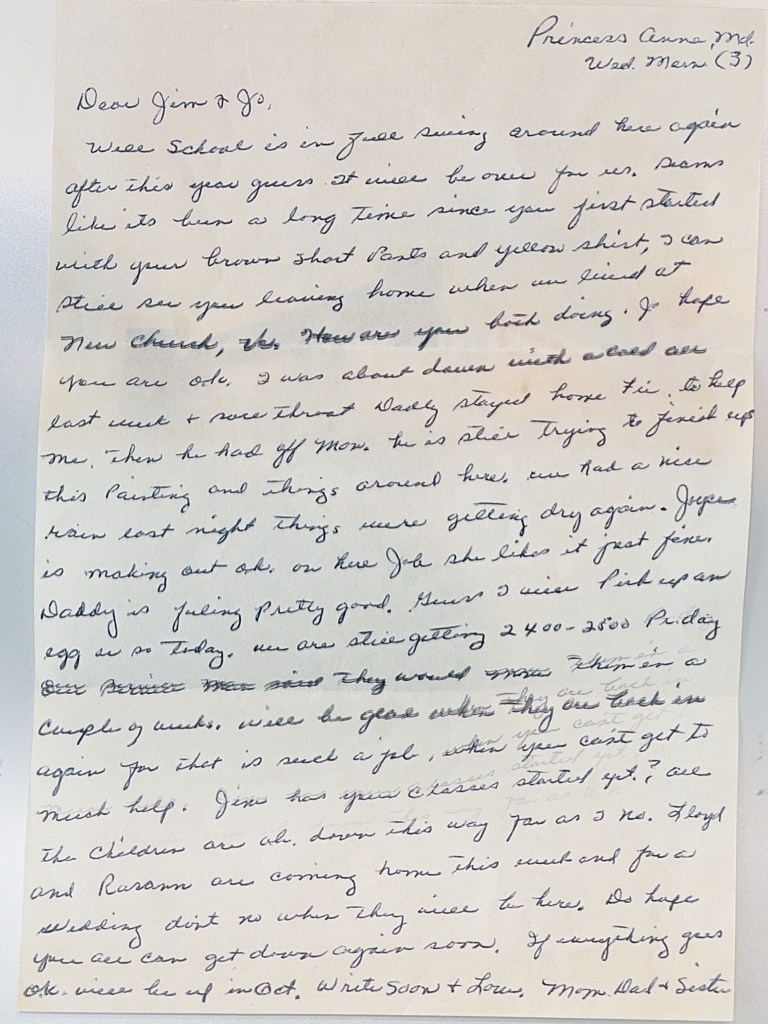 Princess Anne, Md.
Wed. Morn (3)
Dear Jim & Jo,
Well School is in full swing around here again
after this year guess it will be over for us. seams
like its bun a long time since you first started
with your brown short Pants and yellow shirt, I can
still see you leaving home when we lived at
New Church, Va. How are you both doing. Jo hope
you are o.k. I was about down with a cold all
last week & sore throat Daddy stayed home Fri. to help
me. Then he had off Mon. he is still trying to finish up
this Painting and things around here. we had a nice
rain last night things were getting dry again. Joyce
is making out ok. on here Job she likes it just fine.
Daddy is feeling pretty good. Guess I will Pick up an
egg or so today. we are still getting 2400-2500 Pr. day
said they would move them in a
couple of weeks. will be glad when they are back in
again for that is such a job, when you cant get to
much help. Jim has your classes started yet? all
the Children are ok. down this way far as I no. Floyd
and Rosann are coming home this weekend for a
wedding dont no when they will be here. Do hope
you all can get down again soon. If everything goes
o.k. will be up in Oct. Write Soon & Love, Mom. Dad & Sister